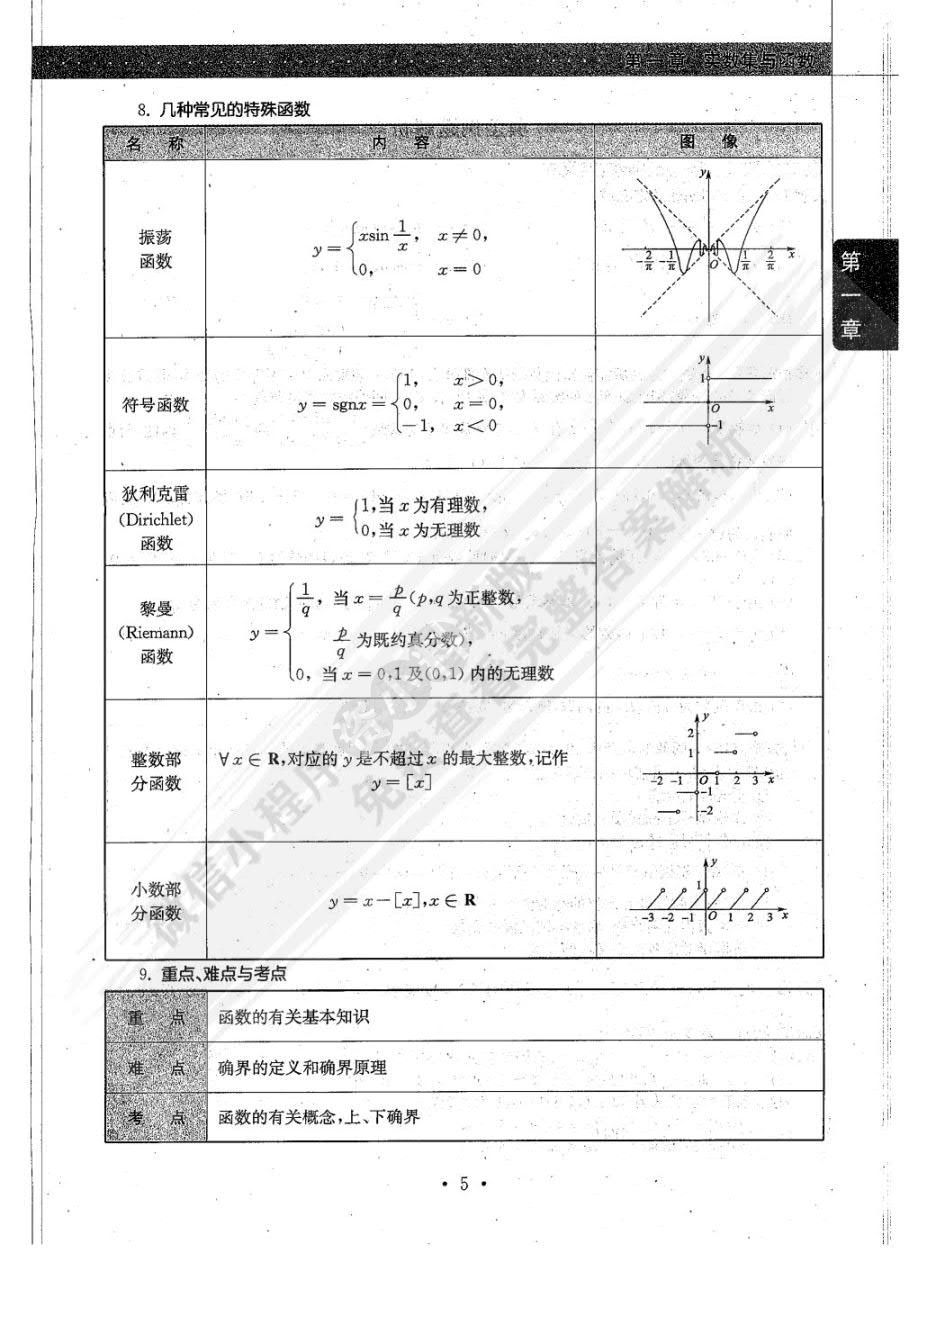 第一章 实数集与函数
8. 几种常见的特殊函数
名 称 内 容 图 像
振荡
函数
y = { xsin 1/x, x ≠ 0,
0, x = 0
y
-2/π -1/π O 1/π 2/π x
符号函数
y = sgnx = { 1, x > 0,
0, x = 0,
-1, x < 0
y
1
O x
-1
狄利克雷
(Dirichlet)
函数
y = { 1,当 x 为有理数,
0,当 x 为无理数
黎曼
(Riemann)
函数
y = { 1/q, 当 x = p/q (p,q 为正整数,
p/q 为既约真分数),
0, 当 x = 0,1 及(0,1) 内的无理数
整数部
分函数
∀x ∈ R,对应的 y 是不超过 x 的最大整数,记作
y = [x]
y
2
1
-2 -1 O 1 2 3 x
-1
-2
小数部
分函数
y = x - [x], x ∈ R
y
1
-3 -2 -1 O 1 2 3 x
9. 重点、难点与考点
重 点 函数的有关基本知识
难 点 确界的定义和确界原理
考 点 函数的有关概念,上、下确界
· 5 ·
第
一
章